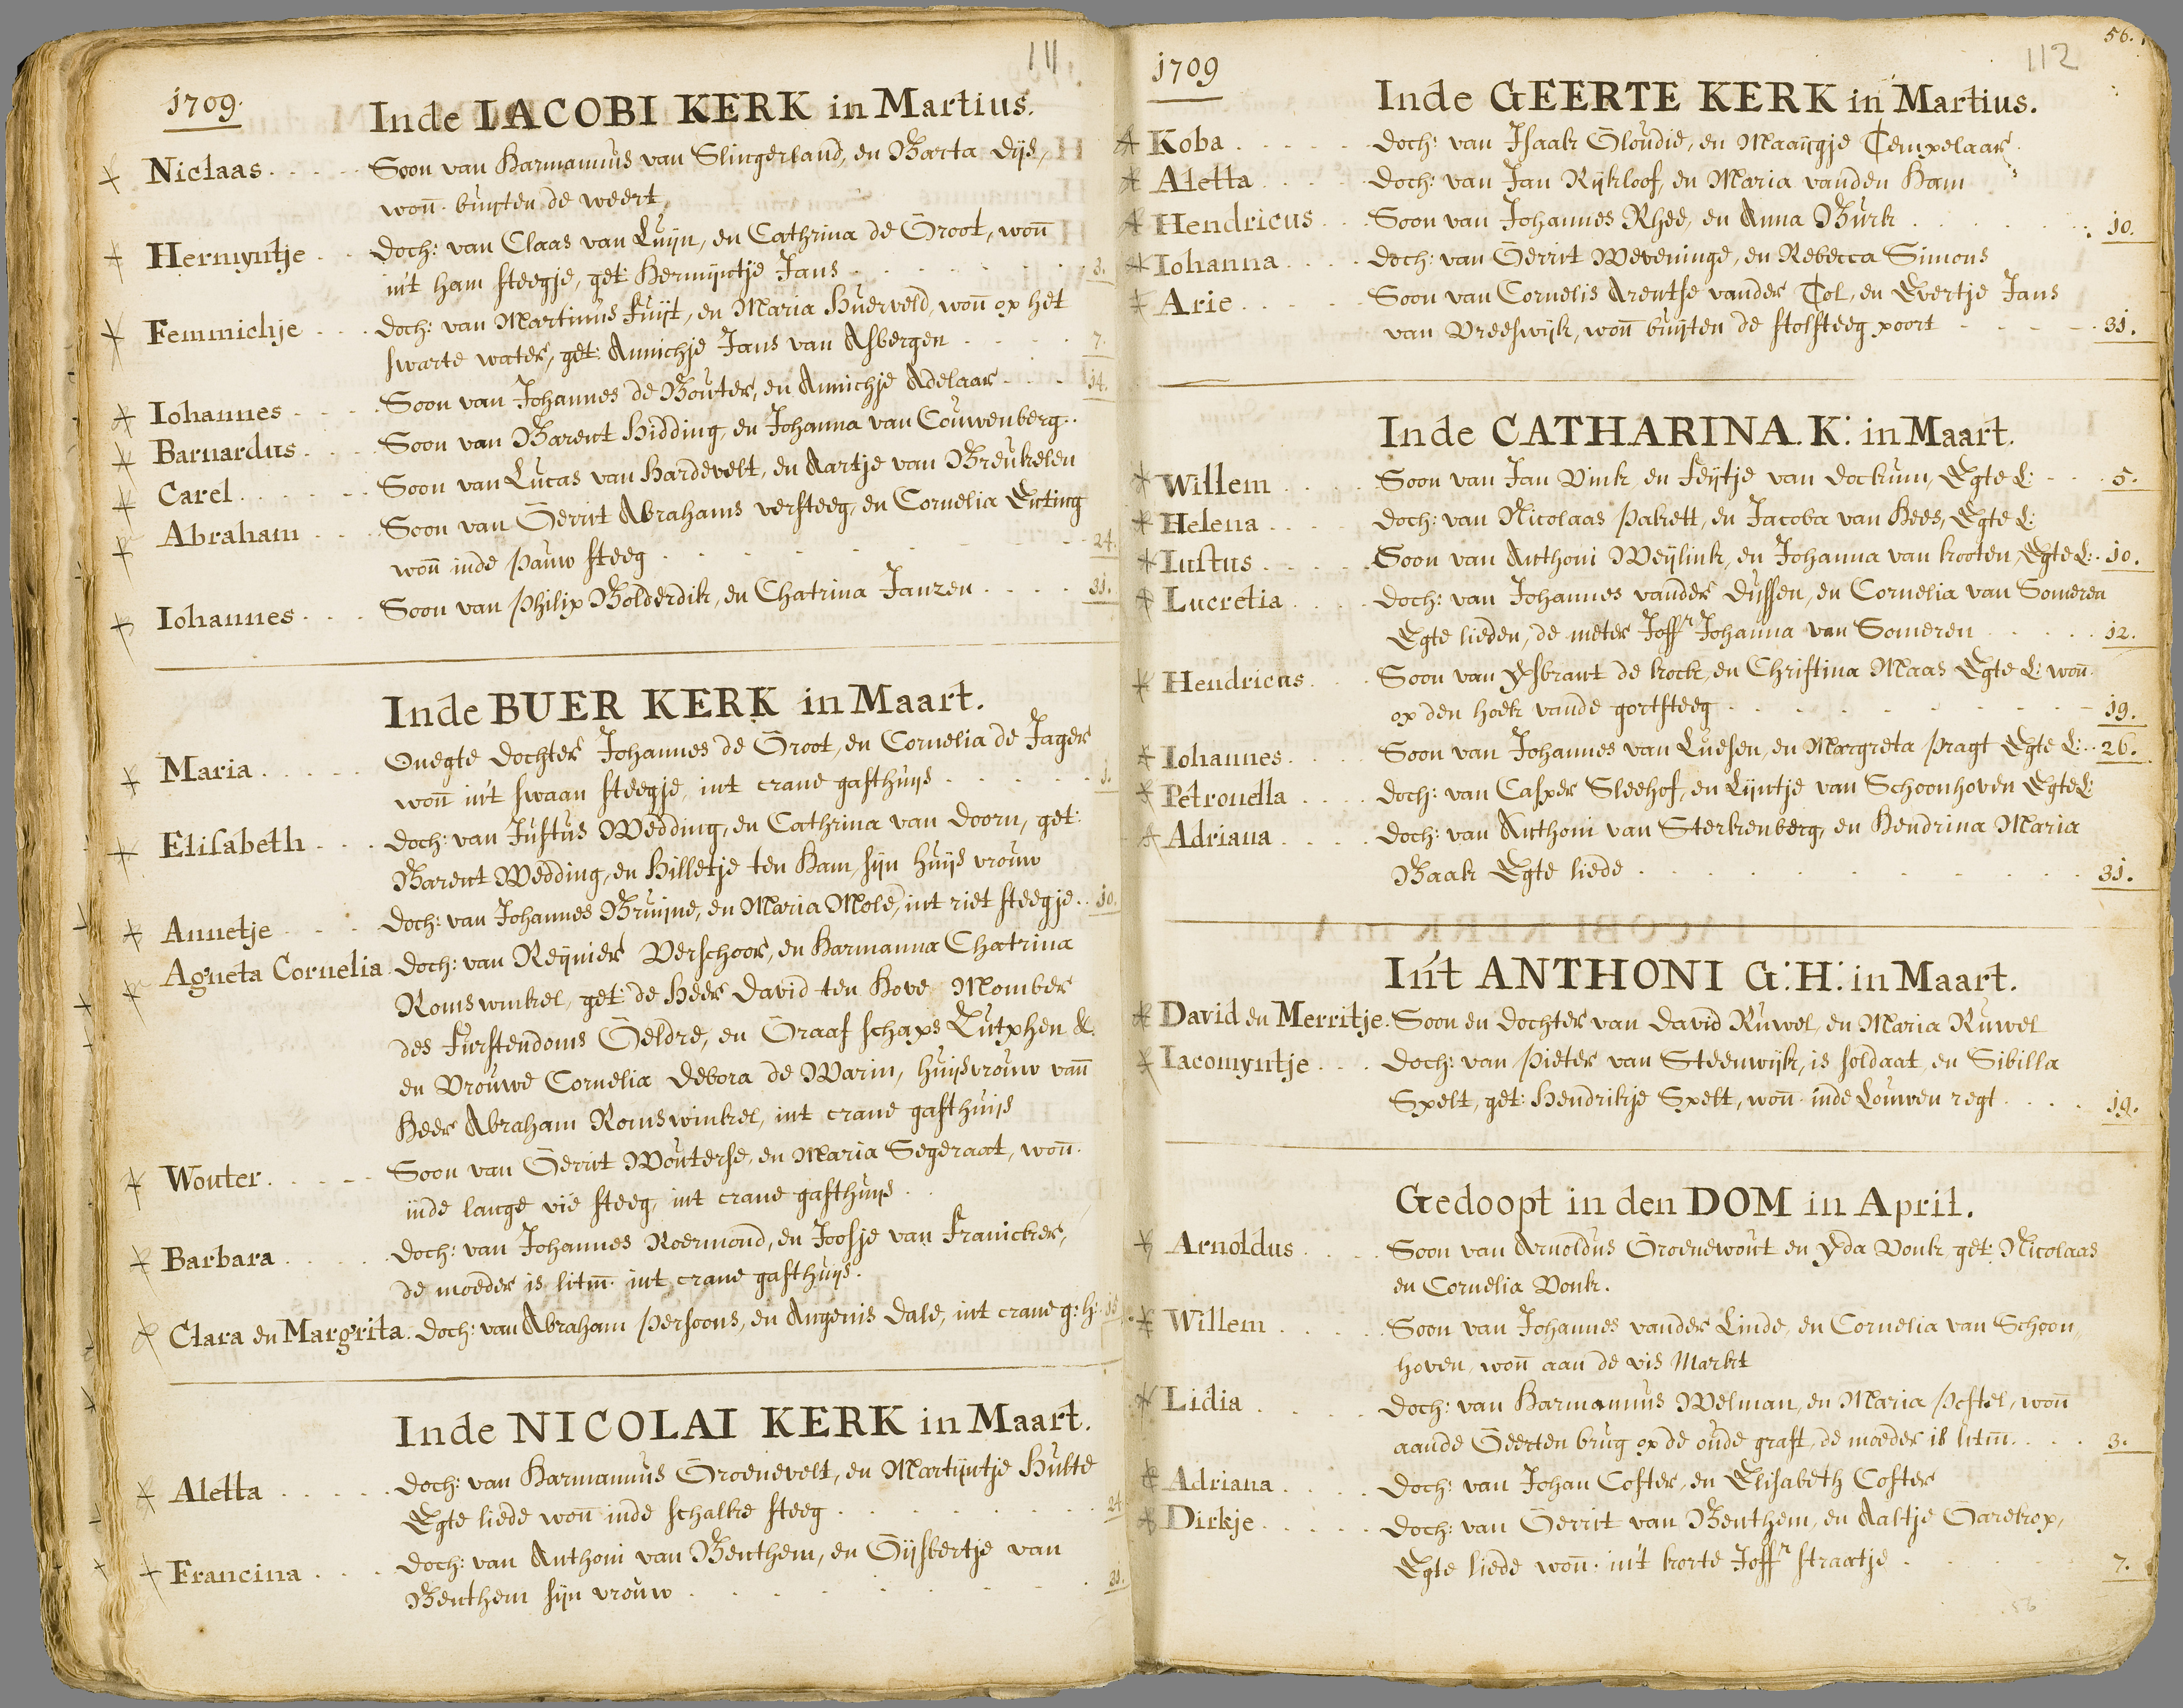 111
1709.
Inde IACOBI KERK in Martius.
Niclaas Soon van Harmannus van Slingerland, en Barta Dijs,
woñ. buyten de weert
Hermyntje doch: van Claas van Luijn, en Cathrina de Groot, woñ
in't ham steegje, get: Hermijntje Jans 3.
Femmichje doch: van Martinus Fuijt, en Maria Huerveld, woñ op het
swarte water, get: Annichje Jans van Asbergen 7.
Iohannes Soon van Johannes de Bouter, en Annichje Adelaar 14.
Barnardus Soon van Barent Hidding, en Johanna van Couwenberg
Carel Soon van Lucas van Hardevelt, en Aartje van Breukelen
Abraham Soon van Gerrit Abrahams versteeg, en Cornelia Enting
woñ inde pauw steeg 24.
Iohannes Soon van Philip Bolderdik, en Chatrina Janzen 31.
Inde BUER KERK in Maart.
Maria Onegte dochter Johannes de Groot, en Cornelia de Jager
woñ in't swaan steegje, int crane gasthuijs 3.
Elisabeth doch: van Justus Wedding, en Cathrina van doorn, get:
Barent Wedding, en Hilletje ten Ham, sijn huijs vrouw
Annetje doch: van Johannes Bruijne, en Maria Mole, int riet steegje 10.
Agneta Cornelia doch: van Reijnier Verschoor, en Harmanna Chatrina
Romswinkel, get: de Heer David ten Hove Momber
des Furstendoms Geldre, en Graaf schaps Zutphen &.
en Vrouwe Cornelia Debora de Marin, huijsvrouw vañ
Heer Abraham Romswinkel, int crane gasthuijs
Wouter Soon van Gerrit Wouterse, en Maria Segeraat, woñ.
inde lange vie steeg, int crane gasthuijs
Barbara doch: van Johannes Roermond, en Joosje van Franicker,
de moeder is litm̃. int crane gasthuijs.
Clara en Margrita. doch: van Abraham Persoons, en Angenis Dale, int crane g: h:
Inde NICOLAI KERK in Maart.
Aletta doch: van Harmannus Groenevelt, en Martijntje Hulte
Egte liede woñ inde schalke steeg 24
Francina doch: van Anthoni van Benthem, en Gijsbertje van
Benthem sijn vrouw 31.
56.
112
1709
Inde GEERTE KERK in Martius.
Koba doch: van Isaak Gloudie, en Maaijgje Tempelaar
Aletta doch: van Jan Rijkloof, en Maria vanden Ham
Hendricus Soon van Johannes Rhee, en Anna Burk 10.
Iohanna doch: van Gerrit Weveninge, en Rebecca Simons
Arie Soon van Cornelis Arentse vander Tol, en Evertje Jans
van Vreeswijk, woñ buijten de tolsteeg poort 31.
Inde CATHARINA. K: in Maart.
Willem Soon van Jan Vink, en Feijtje van dockum, Egte L: 5.
Helena doch: van Nicolaas Pakett, en Jacoba van Hees, Egte L:
Iustus Soon van Anthoni Weijlink, en Johanna van kooten, Egte L: 10.
Lucretia doch: van Johannes vander dussen, en Cornelia van Someren
Egte lieden, de meter Joffr Johanna van Someren 12.
Hendricus Soon van Ysbrant de kock, en Christina Maas Egte L: woñ.
op den hoek vande gortsteeg 19.
Iohannes Soon van Johannes van Luesen, en Margreta pragt Egte L: 26.
Petronella doch: van Casper Sleehof, en Lijntje van Schoonhoven Egte L:
Adriana doch: van Anthoni van Sterkenberg, en Hendrina Maria
Baak Egte liede 31.
In't ANTHONI G: H: in Maart.
David en Merritje. Soon en dochter van David Ruwel, en Maria Ruwel
Iacomyntje doch: van Pieter van Steenwijk, is soldaat, en Sibilla
Spelt, get: Hendrikje Spelt, woñ. inde Louwen regt 19.
Gedoopt in den DOM in April.
Arnoldus Soon van Arnoldus Groenewout en Yda Vonk, get: Nicolaas
en Cornelia Vonk.
Willem Soon van Johannes vander Linde, en Cornelia van Schoon,,
hoven, woñ aan de vis Markt
Lidia doch: van Harmannus Welman, en Maria Pestel, woñ
aande Geerten brug op de oude graft, de moeder is litm̃. 3.
Adriana doch: van Johan Coster, en Elisabeth Coster
Dirkje doch: van Gerrit van Benthem, en Aaltje Garekop,
Egte liede woñ. in't korte Joffr straatje 7.
56